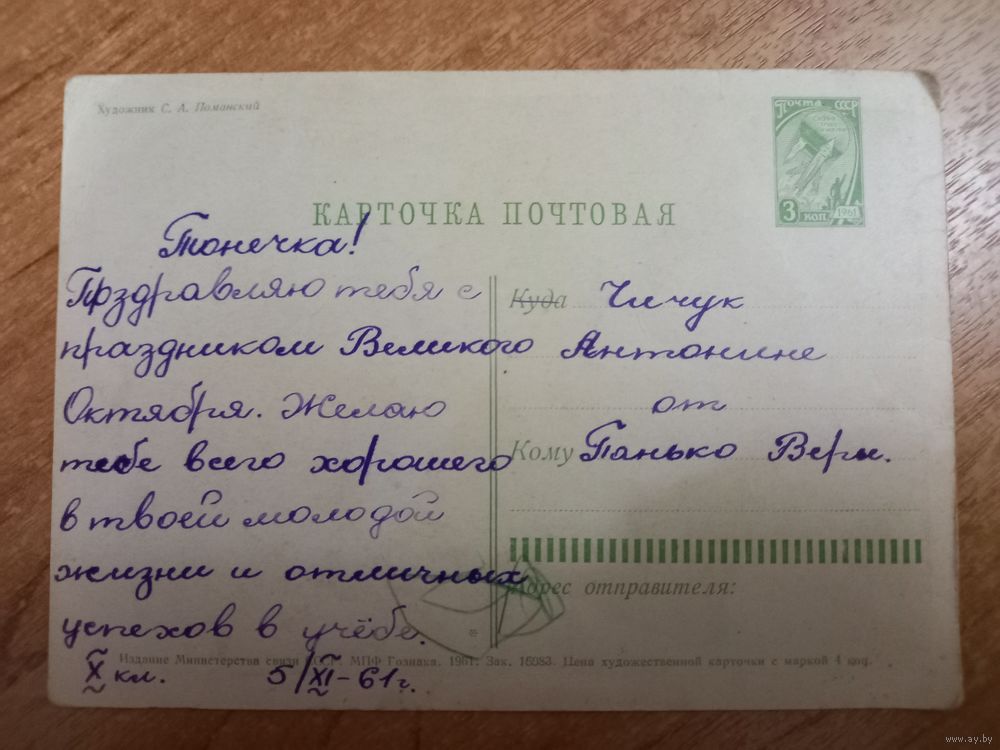 Художник С. А. Поманский
Почта СССР
3 коп
1961
КАРТОЧКА ПОЧТОВАЯ
Тонечка!
Поздравляю тебя с
праздником Великого
Октября. Желаю
тебе всего хорошего
в твоей молодой
жизни и отличных
успехов в учёбе.
X кл. 5/XI-61г.
Куда Чичук
Антонине
от
Кому Панько Веры.
Адрес отправителя:
*
Издание Министерства связи СССР. МПФ Гознака. 1961. Зак. 16983. Цена художественной карточки с маркой 4 коп.
www.ay.by